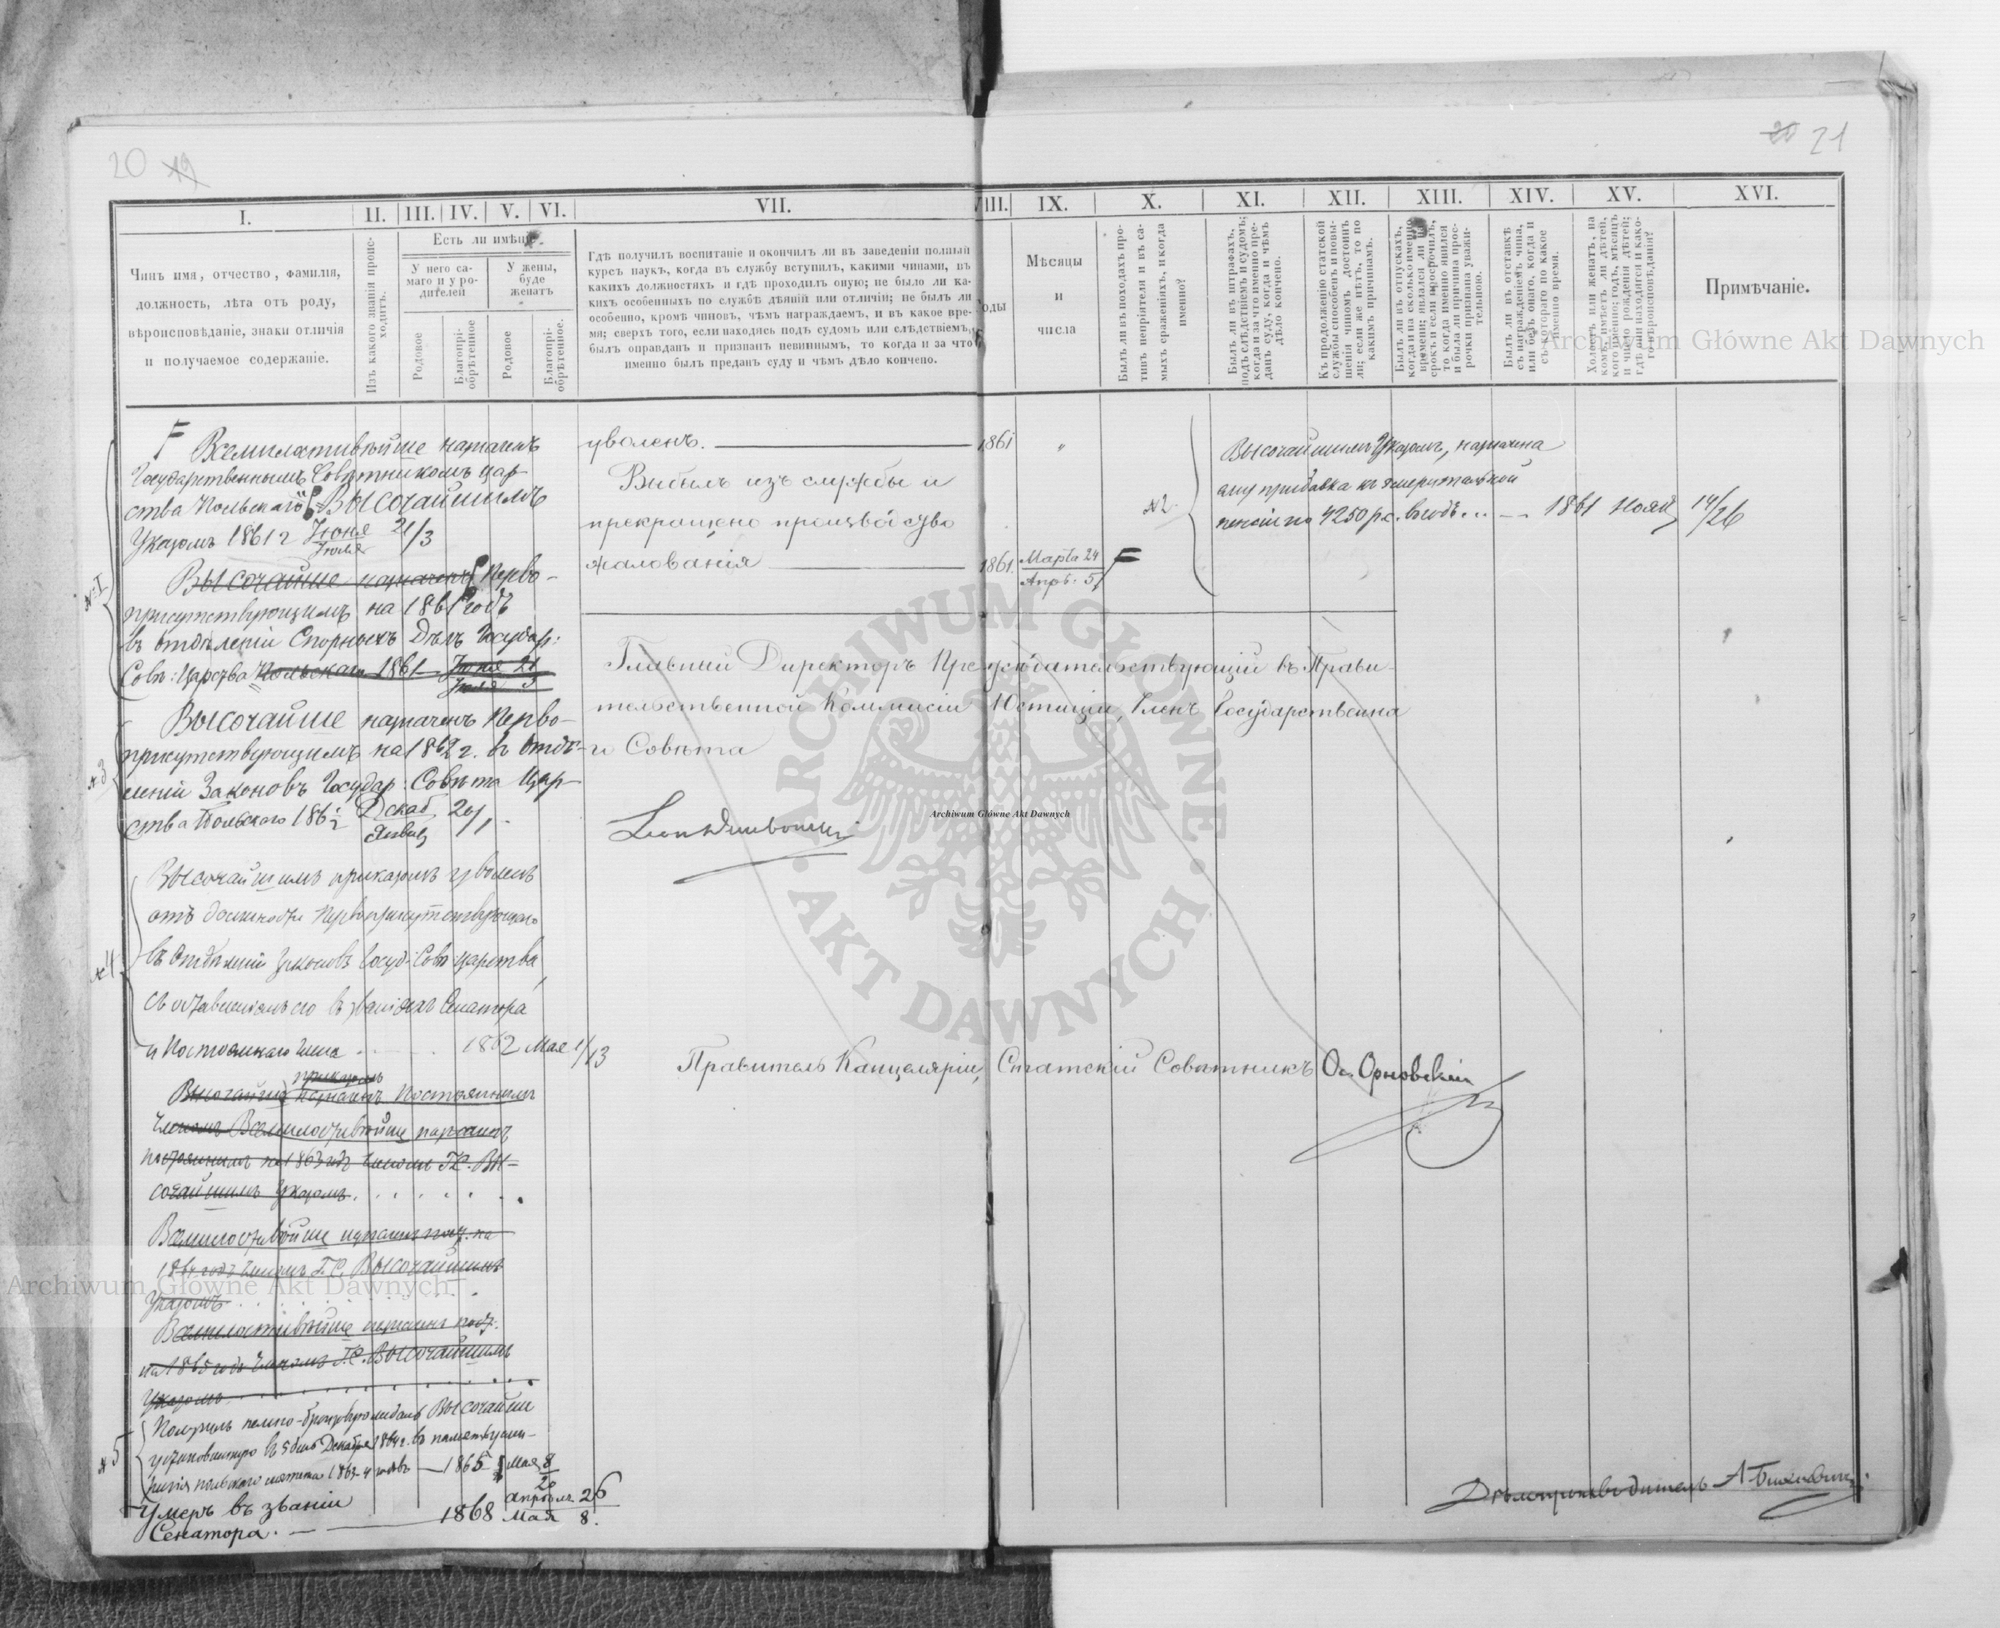 20 19
20 21
I. II. III. IV. V. VI. VII. VIII. IX. X. XI. XII. XIII. XIV. XV. XVI.
Чинъ имя, отчество, фамилія,
должность, лѣта отъ роду,
вѣроисповѣданіе, знаки отличія
и получаемое содержаніе.
Изъ какого званія происходитъ.
Есть ли имѣніе.
У него са-
маго и у ро-
дителей
У жены,
буде
женатъ
Родовое
Благопрі-
обрѣтенное
Родовое
Благопрі-
обрѣтенное.
Гдѣ получилъ воспитаніе и окончилъ ли въ заведеніи полный
курсъ наукъ, когда въ службу вступилъ, какими чинами, въ
какихъ должностяхъ и гдѣ проходилъ оную; не было ли ка-
кихъ особенныхъ по службѣ дѣяній или отличій; не былъ ли
особенно, кромѣ чиновъ, чѣмъ награждаемъ, и въ какое вре-
мя; сверхъ того, если находясь подъ судомъ или слѣдствіемъ,
былъ оправданъ и признанъ невиннымъ, то когда и за что
именно былъ преданъ суду и чѣмъ дѣло кончено.
оды
Мѣсяцы
и
числа
Былъ ли въ походахъ про-
тивъ непріятеля и въ са-
мыхъ сраженіяхъ, и когда
именно?
Былъ ли въ штрафахъ,
подъ слѣдствіемъ и судомъ;
когда и за что именно пре-
данъ суду, когда и чѣмъ
дѣло кончено.
Къ продолженію статской
службы способенъ и повы-
шенія чиномъ достоинъ
ли; если же нѣтъ, то по
какимъ причинамъ.
Былъ ли въ отпускахъ,
когда и на сколько именно
времени; являлся ли на
срокъ и если просрочилъ,
то когда именно явился
и была ли причина прос-
рочки признана уважи-
тельною.
Былъ ли въ отставкѣ
съ награжденіемъ чина,
или безъ онаго, когда и
съ котораго по какое
именно время.
Холостъ или женатъ, на
комъ, имѣетъ ли дѣтей,
кого именно; годъ, мѣсяцъ
и число рожденія дѣтей;
гдѣ они находятся и како-
го вѣроисповѣданія?
Примѣчаніе.
Всемилостивѣйше назначенъ
Государственнымъ Совѣтникомъ Цар-
ства Польскаго ВЫСОЧАЙШИМЪ
Указомъ 1861 г Іюня/Іюля 21/3
№ 1
ВЫСОЧАЙШЕ назначенъ Перво-
присутствующимъ на 1861 годъ
въ отдѣленіи Спорныхъ Дѣлъ Государ:
Сов: Царства Польскаго 1861 Іюня 21/Іюля 3
ВЫСОЧАЙШЕ назначенъ Перво-
присутствующимъ на 1862 г. въ Отдѣ-
№ 3
леніи Законовъ Государ: Совѣта Цар-
ства Польскаго 186½ Декаб/Январ 20/1
ВЫСОЧАЙШИМЪ приказомъ уволенъ
отъ должности Первоприсутствующаго
№ 4
въ Отдѣленіи Законовъ Госуд: Сов: Царства,
съ оставленіемъ его въ званіяхъ Сенатора
и Постояннаго Члена 1862 Мая 1/13
приказомъ
Высочайше назначенъ Постояннымъ
Членомъ Всемилостивѣйше назначенъ
постояннымъ на 1863 годъ Членомъ Г.С. ВЫ-
СОЧАЙШИМЪ Указомъ.
Всемилостивѣйше назначенъ пост. на
1864 годъ Членомъ Г.С. ВЫСОЧАЙШИМЪ
Указомъ
Всемилостивѣйше назначенъ пост.
на 1865 годъ Членомъ Г.С. ВЫСОЧАЙШИМЪ
Указомъ
№ 5
Получилъ темно-бронзовую медаль ВЫСОЧАЙШЕ
установленную въ день Декабря 1864 г. въ память усми-
ренія польскаго мятежа 1863-4 годовъ 1865 Мая 8/20
Умеръ въ званіи
Сенатора. 1868 Апрѣля 26/Мая 8.
уволенъ. 1861 "
Выбылъ изъ службы и
прекращено производство
жалованія 1861. Марта 24/Апрѣ: 5
№ 2
ВЫСОЧАЙШИМЪ Указомъ, назначена
ему прибавка къ эмеритальной
пенсіи по 4250 р.с. въ годъ... 1861 Нояб 14/26
Главный Директоръ Предсѣдательствующій въ Прави-
тельственной Коммисіи Юстиціи, Членъ Государственна-
го Совѣта
Leon Dembowski
Правитель Канцеляріи, Статскій Совѣтникъ Ос. Орновскій
Дѣлопроизводитель
ARCHIWUM GŁÓWNE AKT DAWNYCH
Archiwum Główne Akt Dawnych
Archiwum Główne Akt Dawnych
Archiwum Główne Akt Dawnych